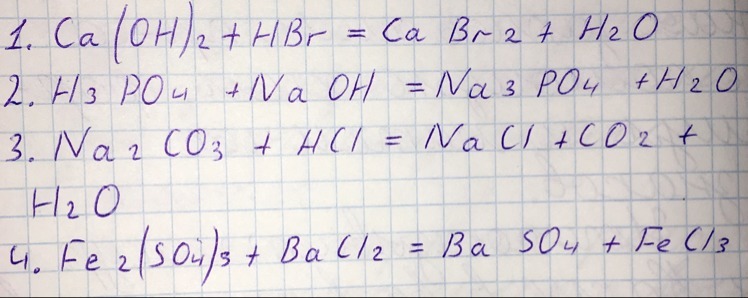 1. Ca(OH)2 + HBr = CaBr2 + H2O
2. H3PO4 + NaOH = Na3PO4 + H2O
3. Na2CO3 + HCl = NaCl + CO2 +
H2O
4. Fe2(SO4)3 + BaCl2 = BaSO4 + FeCl3